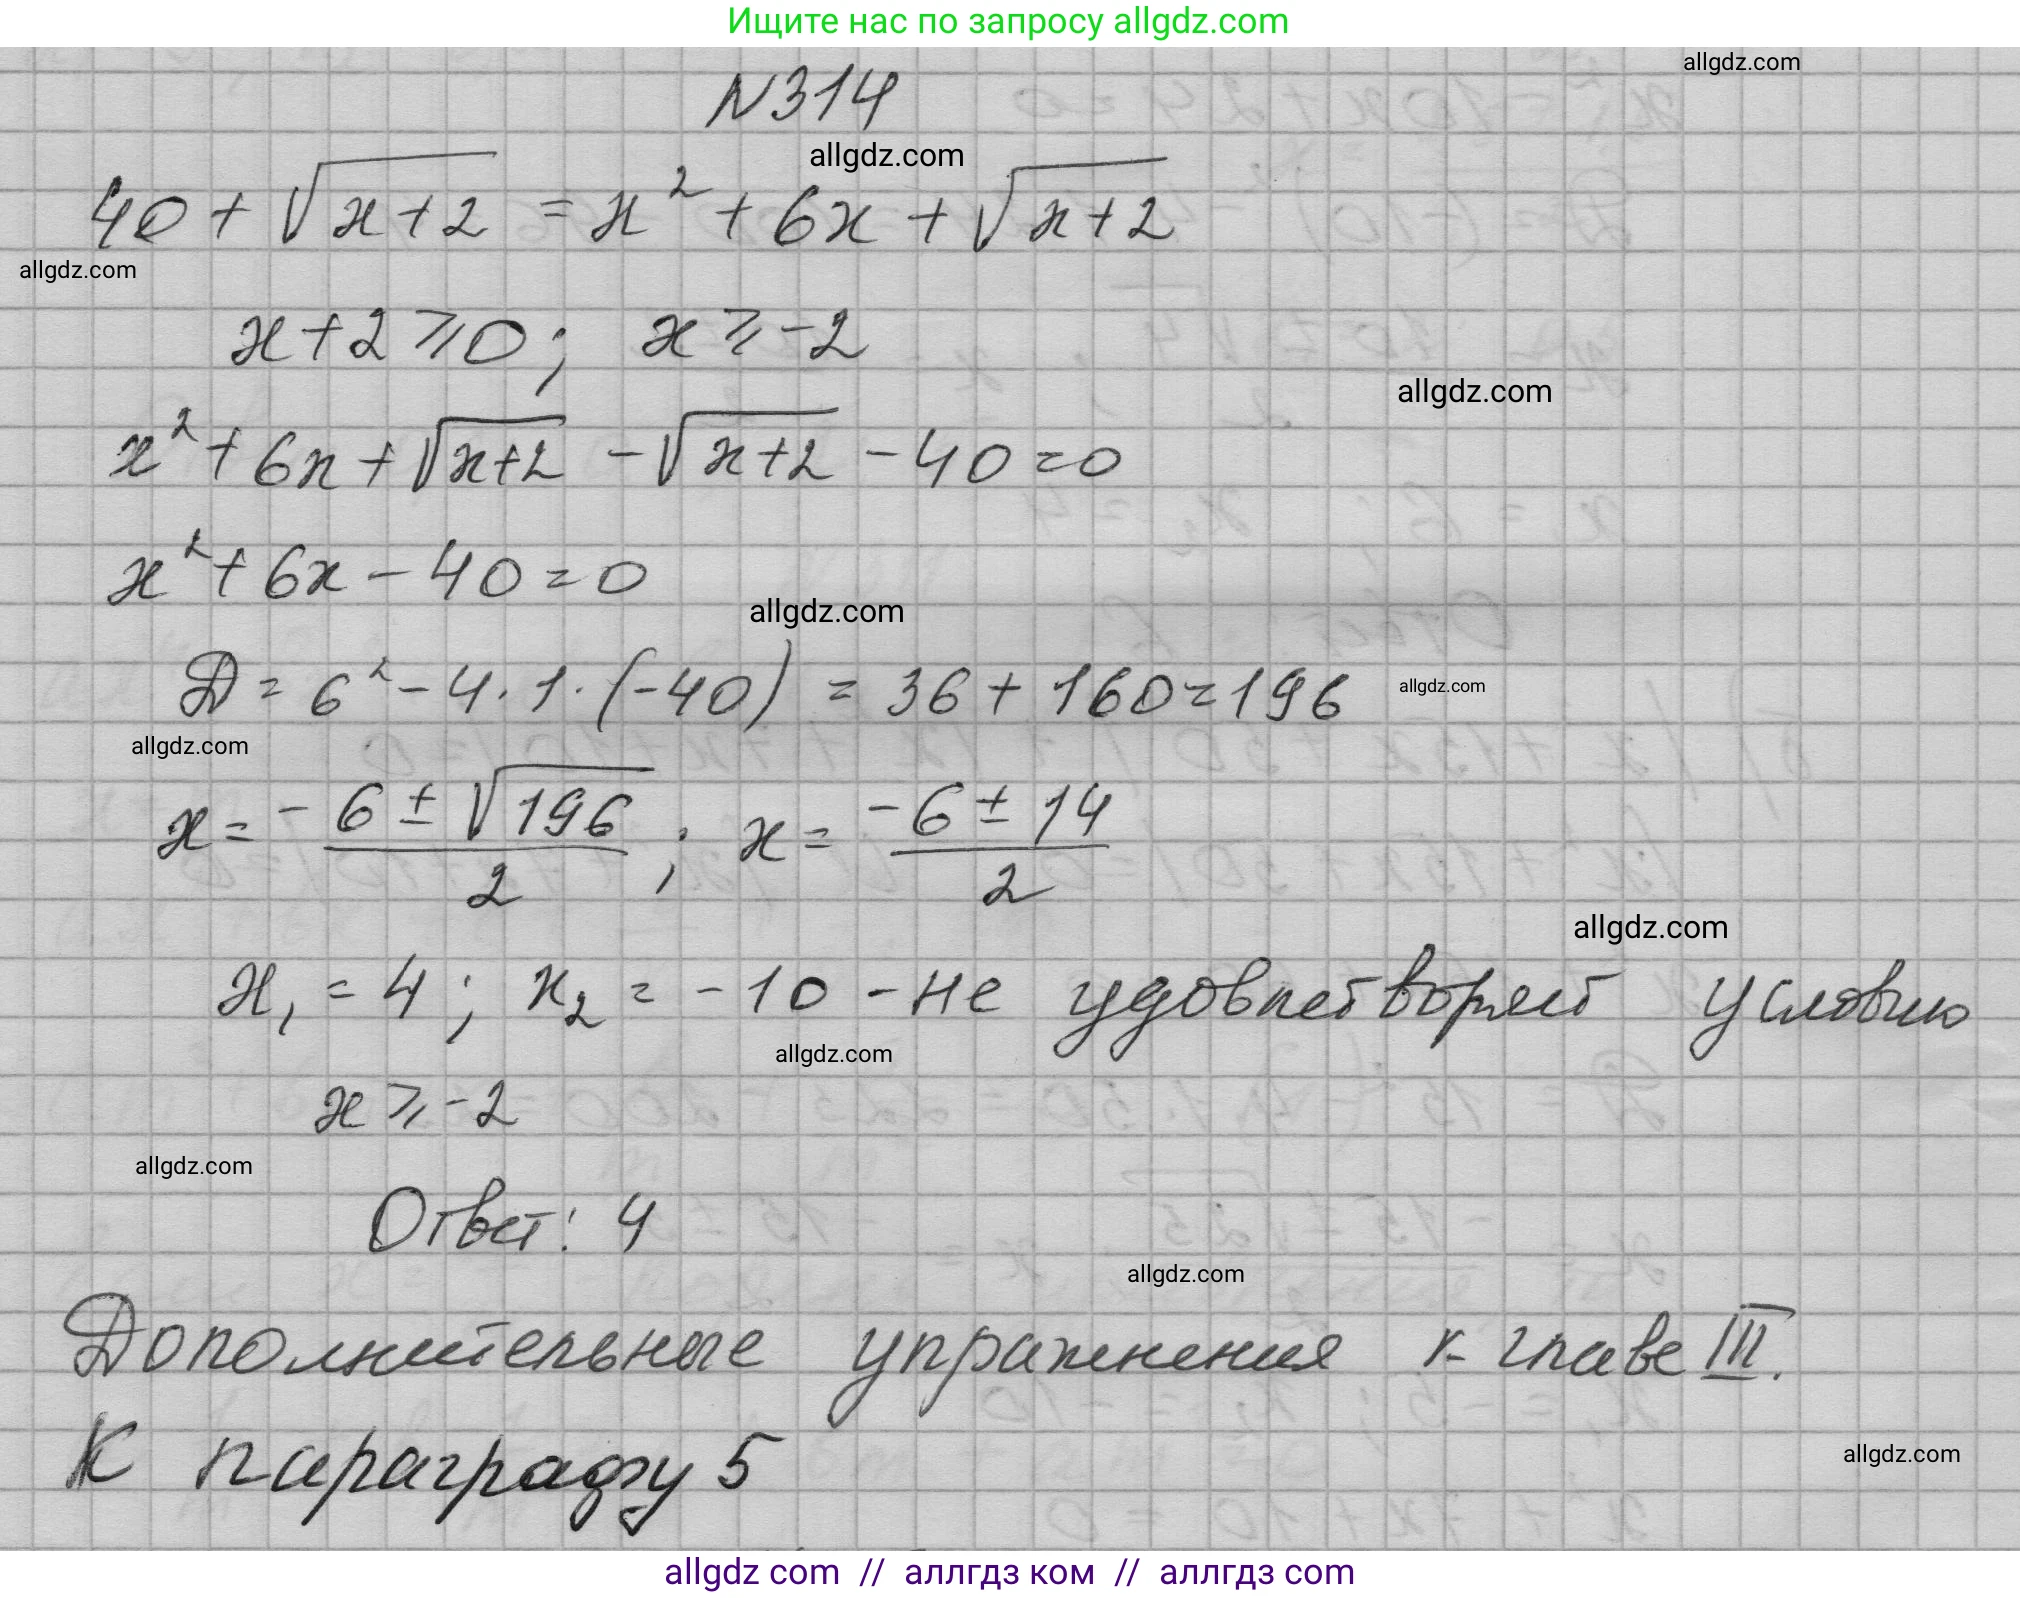 Ищите нас по запросу allgdz.com
allgdz.com
N314
allgdz.com
40 + √(x+2) = x² + 6x + √(x+2)
allgdz.com
x+2 ⩾ 0; x ⩾ -2
allgdz.com
x² + 6x + √(x+2) - √(x+2) - 40 = 0
x² + 6x - 40 = 0
allgdz.com
D = 6² - 4·1·(-40) = 36 + 160 = 196
allgdz.com
allgdz.com
x = (-6 ± √196)/2; x = (-6 ± 14)/2
allgdz.com
x₁ = 4; x₂ = -10 - не удовлетворяет условию
allgdz.com
x ⩾ -2
allgdz.com
Ответ: 4
allgdz.com
Дополнительные упражнения к главе III.
К параграфу 5
allgdz.com
allgdz com // аллгдз ком // аллгдз com